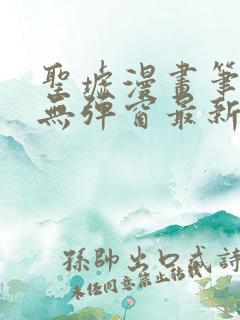 聖墟漫畫筆
無彈窗最新
孫帥出口成詩
未經同意禁止轉載